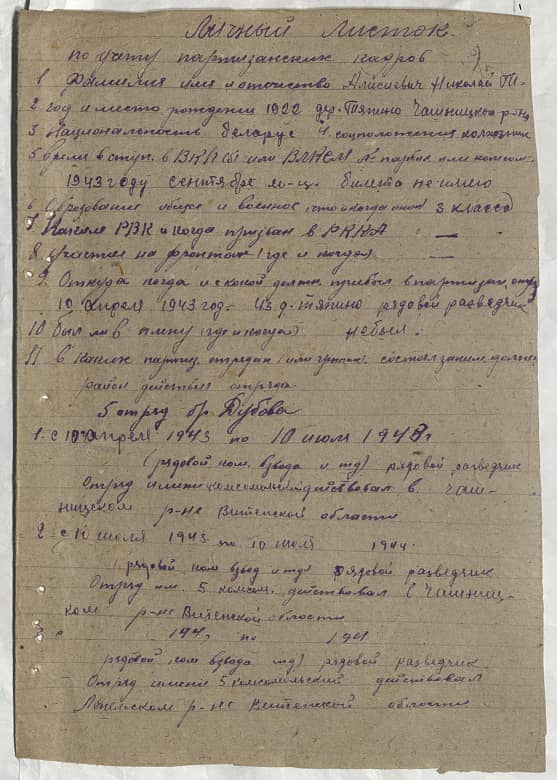 Личный Листок.
по учёту партизанских кадров
1 Фамилия имя и отчество Алисиевич Николай
2 год и место рождения 1922 дер. Тяпино Чашницкого р-на
3 Национальность беларус 4 соцположения колхозник
5 время вступ. в ВКПб или ВЛКСМ
1943 году сентябре м-ц. билета не имею
6 Образование общее и военное (что и когда окон) 3 класса
7 Каким РВК и когда призван в РККА —
8 Участие на фронтах (где и когда) —
9. Откуда когда и с какой должн. прибыл в партизан. отряд
10 апреля 1943 год- из д. Тяпино рядовой разведчик
10 Был ли в плену (где и когда) небыл.
11 В каких партиз. отрядах (или группах) состоял заним. должн.
район действия отряда
5 отряд бр. Дубова
1. с 10 апреля 1943 по 10 июля 1943 г
(рядовой ком. взвода и тд) рядовой разведчик
Отряд имени комсомольский действовал в Чаш-
ницском р-не Витепской области
2 с 10 июля 1943 по 10 июля 1944.
(рядовой ком взвод и тд рядовой разведчик
Отряд им. 5 комсом. действовал в Чашниц-
ком р-не Витепской области
3 с 194 по 194
рядовой ком взвода тд) рядовой разведчик.
Отряд имени 5 комсомольский действовал
Лепелском р-не Витепской области